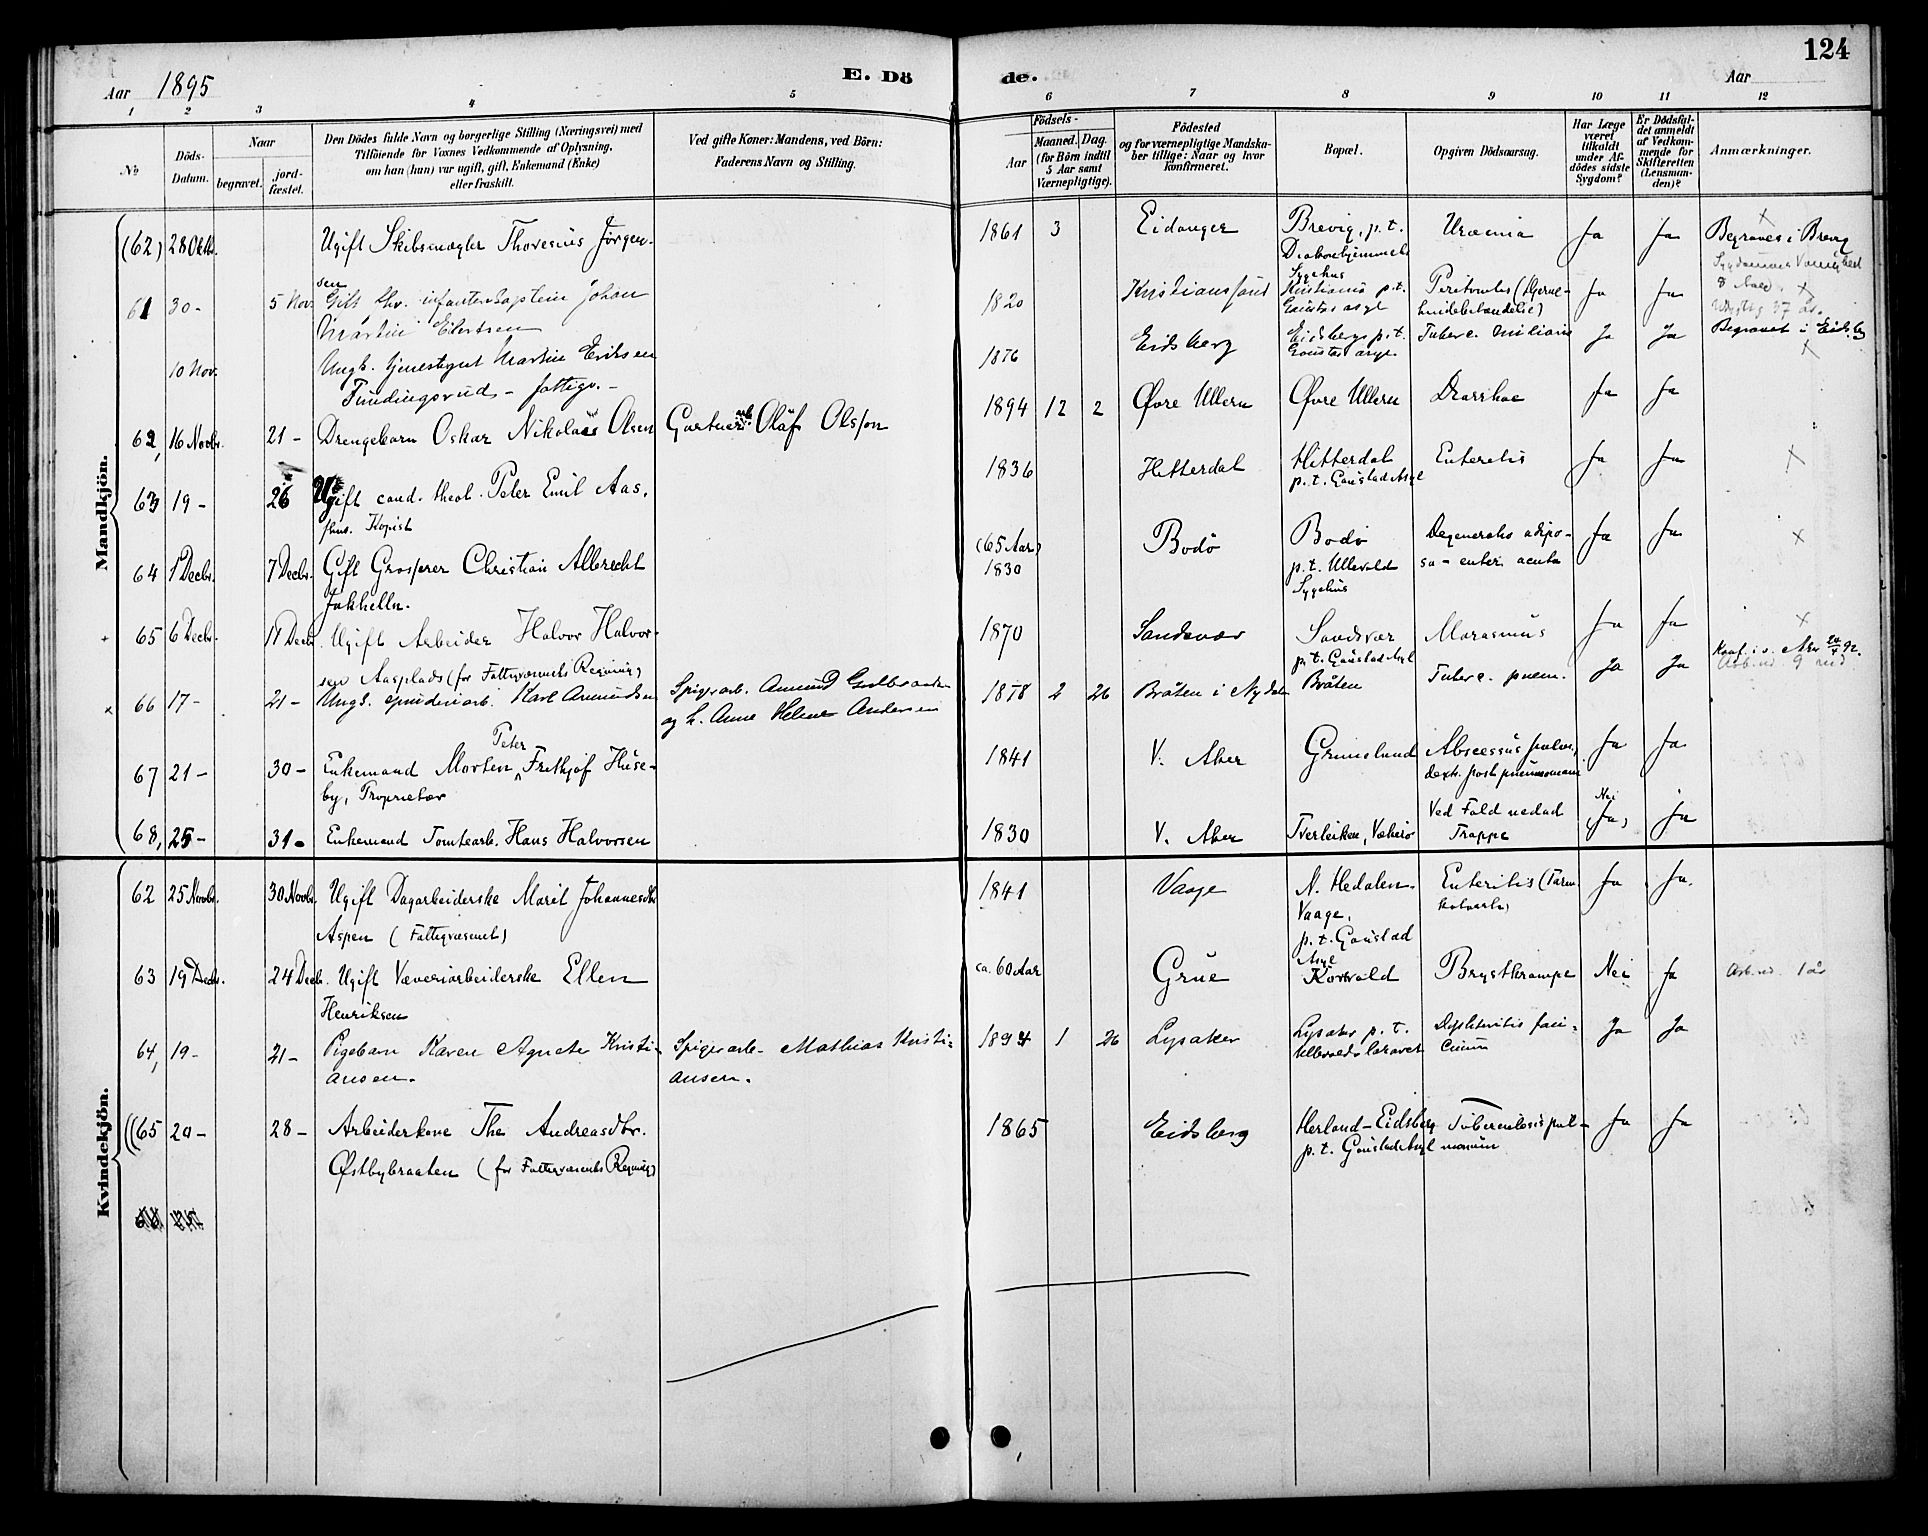 124
Aar 1895
E. Dö
de.
Aar
1 2 3 4 5 6 7 8 9 10 11 12
No
Döds-
Datum.
Naar
begravet.
jord-
fæstet.
Den Dödes fulde Navn og borgerlige Stilling (Næringsvei) med
Tilföiende for Voxnes Vedkommende af Oplysning,
om han (hun) var ugift, gift, Enkemand (Enke)
eller fraskilt.
Ved gifte Koner: Mandens, ved Börn:
Faderens Navn og Stilling.
Födsels-
Aar
Maaned. Dag.
(for Börn indtil
5 Aar samt
Værnepligtige).
Födested
og for værnepligtige Mandska-
ber tillige: Naar og hvor
konfirmeret.
Bopæl.
Opgiven Dödsaarsag.
Har Læge
været
tilkaldt
under Af-
dödes sidste
Sygdom?
Er Dödsfal-
det anmeldt
af Vedkom-
mende for
Skifteretten
(Lensman-
den)?
Anmærkninger.
Mandkjön.
(62) 28 Oktb. Ugift Skibsmægler Thoresius Jörgen-
sen
1861 3 Eidanger Brevig, p. t. Uræmia Ja Ja Begraves i Brevig
Sygehus
61 30 - 5 Nov. Gift Johan
Martin Eilertsen
1820 Kristiansund Kristiania p.t.
Gaustad asyl
Ja Ja
10 Nov. Ungk. tjenestegut Martin Eriksen
Tundingsrud - fattigv. -
1876 Eidsberg Eidsberg p. t.
Gaustad asyl
Tuberc. miliaris Ja Ja Begravet i Eidsbg
62, 16 Novbr. 21 - Drengebarn Oskar Nikolai Olsen Gartnerarb. Olaf Olsson
1894 12 2 Øvre Ullern Øvre Ullern Diarrhoe Ja Ja
63 19 - 26 Ugift cand. theol. Peter Emil Aas,
fhv. Kopist
1836 Hitterdal Hitterdal
p. t. Gaustad Asyl
Enteritis Ja Ja
64 1 Decbr. 7 Decbr. Gift Grosserer Christian Albrecht
Jakhelln.
(65 Aar)
1830
Bodö Bodö
p. t. Ullevold
Sygehus
Degeneratio adipo-
sa - enter. acuta
Ja Ja
65 6 Decbr. 11 Decb. Ugift Arbeider Halvor Halvor-
sen Aasplads (for Fattigvæsenets Regning)
1870 Sandsvær Sandsvær
p. t. Gaustad Asyl
Marasmus Ja Ja
66 17 - 21 - Ungk. spinderiarb. Karl Amundsen Spigerarb. Amund Gulbrandsen
og h. Anne Helene Andersen
1878 2 26 Bråten i Nydalen Bråten Tuberc. pulm. Ja Ja Konf. i v. Aker 24/4 92.
67 21 - 30 - Enkemand Morten Peter Frithjof Huse-
by, Proprietær
1841 V. Aker Grimelund Abscessus pulm.
dextr. post pneumoniam
Ja Ja
68, 25 - 31 - Enkemand Tomtearb. Hans Halvorsen
1830 V. Aker Tverleiken, Vækerö Ved Fald nedad
Trappe
Nei
(Ja) Ja
Kvindekjön.
62 25 Novbr. 30 Novbr. Ugift Dagarbeiderske Marit Johannesdtr
Aspen (Fattigvæsenet)
1841 Vaage N. Hedalen
Vaage,
p. t. Gaustad
Asyl
Enteritis (Tarm-
katarrh)
Ja Ja.
63 19 Decbr. 24 Decb. Ugift Væveriarbeiderske Ellen
Henriksen
ca. 60 Aar Grue Korsvold Brystkrampe Nei Ja Arb.ud. 1 år
64, 19 - 21 - Pigebarn Karen Agnete Kristi-
ansen.
Spigerarb. Mathias Kristi-
ansen.
1894 1 26 Lysaker Lysaker p. t.
Ullevolds lazaret
Diphteritis fau-
cium
Ja Ja
((65 20 - 28 - Arbeiderkone Thea Andreasdtr.
Østbybraaten (for Fattigvæsenets Regning)
1865 Eidsberg Herland - Eidsberg
p. t. Gaustad Asyl
Tuberculosis pul-
monum
Ja Ja